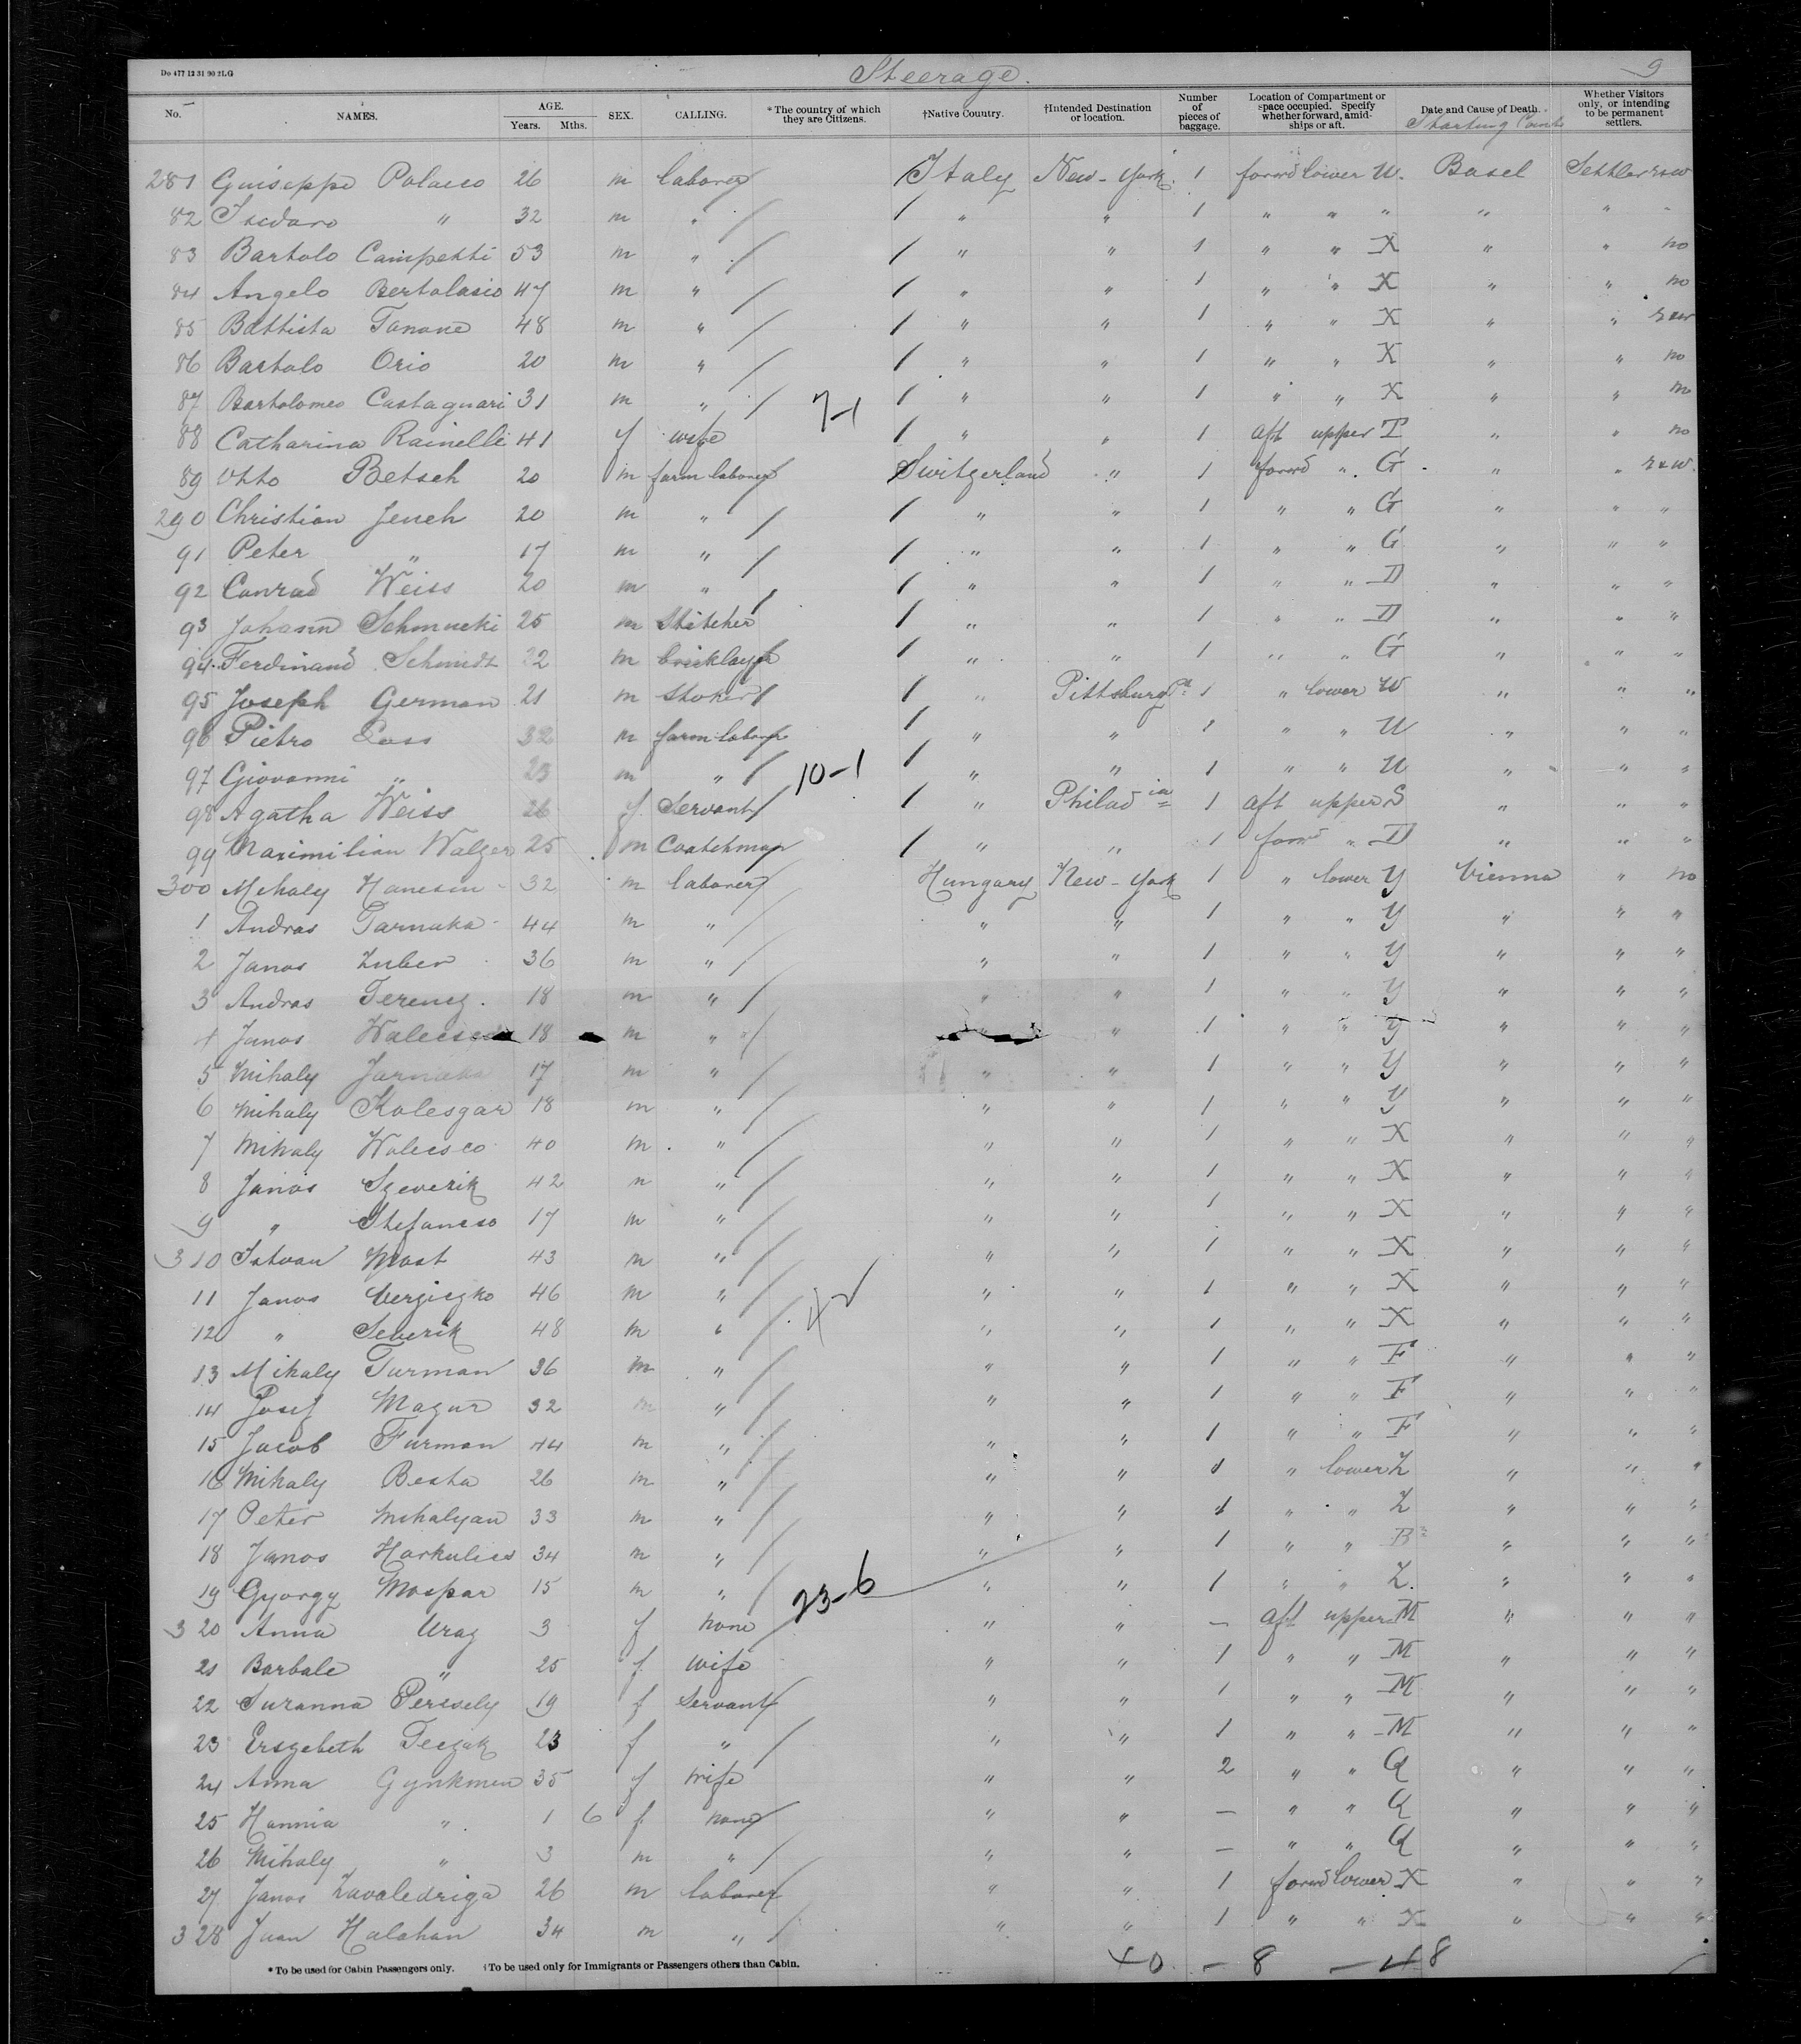 Do 477 12 31 90 2LG Steerage. 9
No. NAMES. AGE. Years. Mths. SEX. CALLING. *The country of which they are Citizens. †Native Country. †Intended Destination or location. Number of pieces of baggage. Location of Compartment or space occupied. Specify whether forward, amidships or aft. Date and Cause of Death. Starting Whether Visitors only, or intending to be permanent settlers.
281 Guiseppe Polacco 26 m laborer Italy New-York 1 forwd lower W. Basel Settler
82 Isedoro " 32 m " " " 1 " " " " "
83 Bartolo Campetti 53 m " " " 1 " " X " " no
84 Angelo Bertolasio 47 m " " " 1 " " X " " no
85 Battista Tonone 48 m " " " 1 " " X " "
86 Bartolo Orio 20 m " " " 1 " " X " " no
87 Bartolomeo Castagnari 31 m " 7-1 " " 1 " " X " " no
88 Catharina Rainelli 41 f wife " " 1 aft upper T " " no
89 Otto Betsch 20 m farm laborer Switzerland " 1 forwd " G " "
290 Christian Jench 20 m " " " 1 " " G " " "
91 Peter " 17 m " " " 1 " " G " " "
92 Conrad Weiss 20 m " " " 1 " " D " " "
93 Johann Schmucki 25 m Stitcher " " 1 " " D " " "
94 Ferdinand Schmidt 22 m bricklayer " " 1 " " G " " "
95 Joseph German 21 m Stoker " Pittsburg Pa 1 " lower W " " "
96 Pietro 32 m farm laborer " " 1 " " W " " "
97 Giovanni " 23 m " 10-1 " " 1 " " W " " "
98 Agatha Weiss 26 f Servant " Philadia 1 aft upper S " " "
99 Maximilian Walzer 25 m Coatchman " " 1 forwd " D " " "
300 Mihaly Hanesin 32 m laborer Hungary New-York 1 " lower Y Vienna " no
1 Andras Tarnaka 44 m " " " 1 " " Y " " "
2 Janos Zuber 36 m " " " 1 " " Y " " "
3 Andras Ferencz 18 m " " " 1 " " Y " " "
4 Janos 18 m " " " 1 " " Y " " "
5 Mihaly 17 m " " " 1 " " Y " " "
6 Mihaly Kolesgar 18 m " " " 1 " " Y " " "
7 Mihaly Walecsco 40 m " " " 1 " " X " " "
8 Janos Szeverik 42 m " " " 1 " " X " " "
9 " Stefancso 17 m " " " 1 " " X " " "
310 Istvan Most 43 m " " " 1 " " X " " "
11 Janos Verziczko 46 m " " " 1 " " X " " "
12 " Severik 48 m " " " 1 " " X " " "
13 Mihaly Furman 36 m " " " 1 " " F " " "
14 Josef Mazur 32 m " " " 1 " " F " " "
15 Jacob Furman 44 m " " " 1 " " F " " "
16 Mihaly Besha 26 m " " " 1 " lower Z " " "
17 Peter Mihalyan 33 m " " " 1 " " Z " " "
18 Janos Harkulics 34 m " " " 1 " " B " " "
19 Gyorgy Mospar 15 m " 23-6 " " 1 " " Z. " " "
320 Anna Uraz 3 f none " " — aft upper M " " "
21 Borbale " 25 f wife " " 1 " " M " " "
22 Suzanna Peresely 19 f Servant " " 1 " " M " " "
23 Erszebeth Teczak 23 f " " " 1 " " M " " "
24 Anna Gynkmen 35 f wife " " 2 " " Q " " "
25 Hannia " 1 6 f none " " — " " Q " " "
26 Mihaly " 3 m " " " — " " Q " " "
27 Janos Zavaledriga 26 m laborer " " 1 forwd lower X " " "
328 Juan Halahan 34 m " " " 1 " " X " " "
*To be used for Cabin Passengers only. †To be used only for Immigrants or Passengers others than Cabin. 40 - 8 - 48